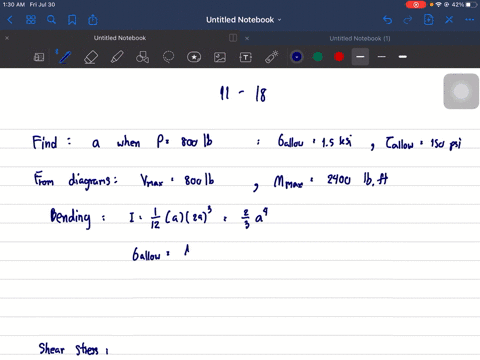 1:30 AM Fri Jul 30 42%
Untitled Notebook
Untitled Notebook Untitled Notebook (1)
11 - 18
Find : a when P = 800 lb : σallow = 1.5 ksi , τallow = 150 psi
From diagrams : Vmax = 800 lb , Mmax = 2400 lb.ft
Bending : I = 1/12 (a)(2a)³ = 2/3 a⁴
σallow =
Shear stress :